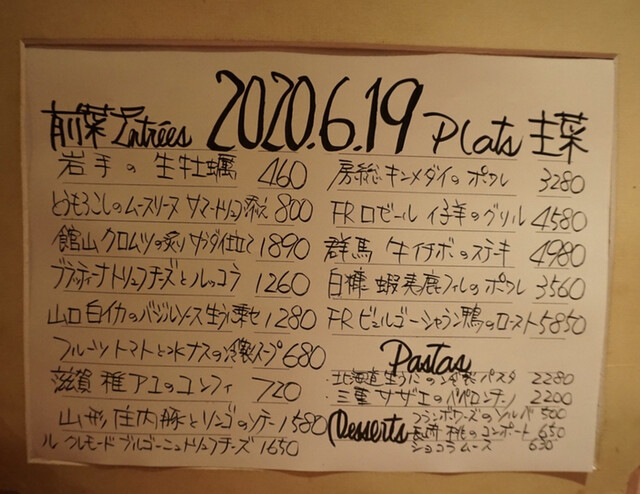 2020.6.19
前菜 Entrées
岩手の生牡蠣 460
とうもろこしのムースリーヌ サマートリュフ添え 800
館山クロムツの炙り サラダ仕立て 1890
ブラッティーナ トリュフチーズとルッコラ 1260
山口 白イカのバジルソース 生うに乗せ 1280
フルーツトマトと水ナスの冷製スープ 680
滋賀 稚アユのコンフィ 720
山形 庄内豚とリンゴのソテー 1580
ル クレモード ブルゴーニュトリュフチーズ 1650
Plats 主菜
房総 キンメダイのポワレ 3280
FR ロゼール 仔羊のグリル 4580
群馬 牛イチボのステーキ 4980
白糠 蝦夷鹿フィレのポワレ 3560
FR ビュルゴー シャラン鴨のロースト 5850
Pastas
北海道生うにの冷製パスタ 2280
三重 サザエのペペロンチーノ 2200
Desserts
フランボワーズのソルベ 500
長崎 桃のコンポート 650
ショコラムース 630